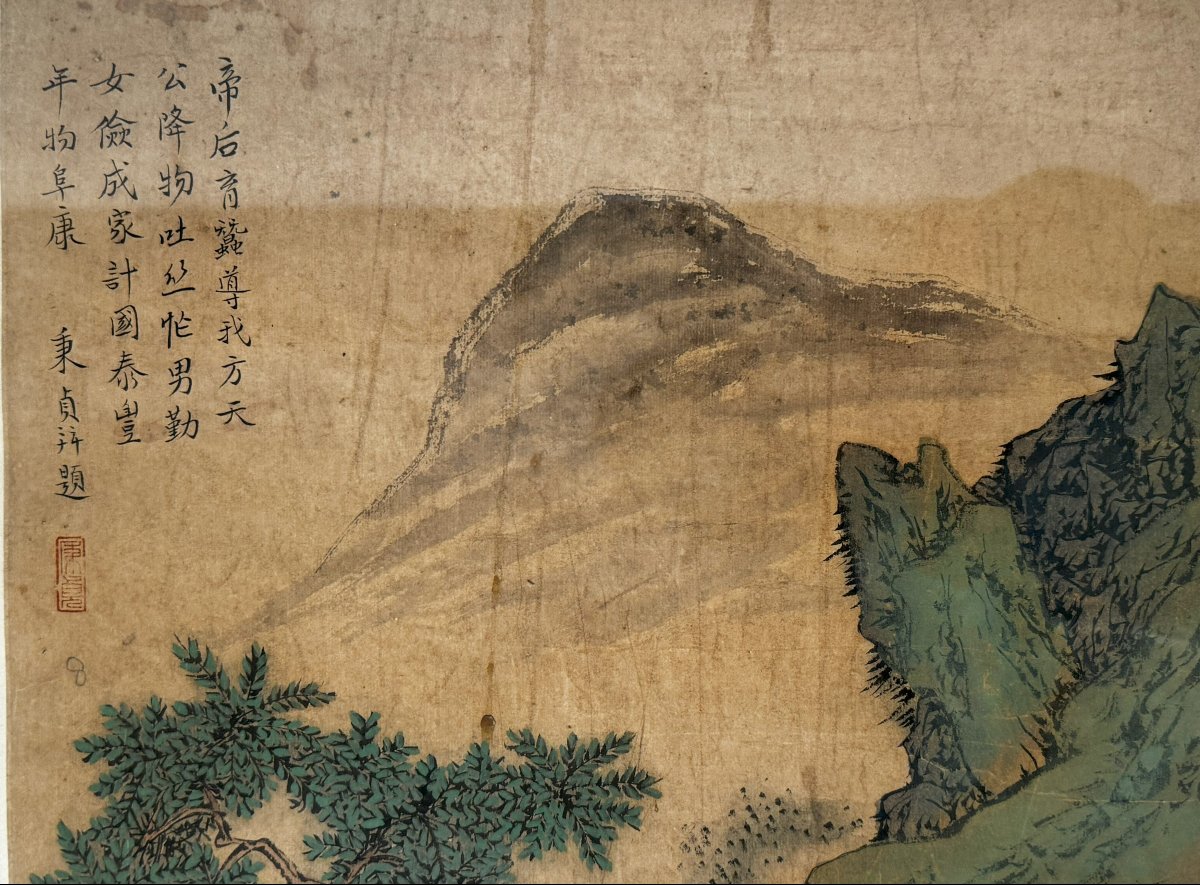 帝后育蠶導我方天
公降物吐丝忙男勤
女儉成家計國泰豐
年物阜康 秉貞并題
秉貞
8